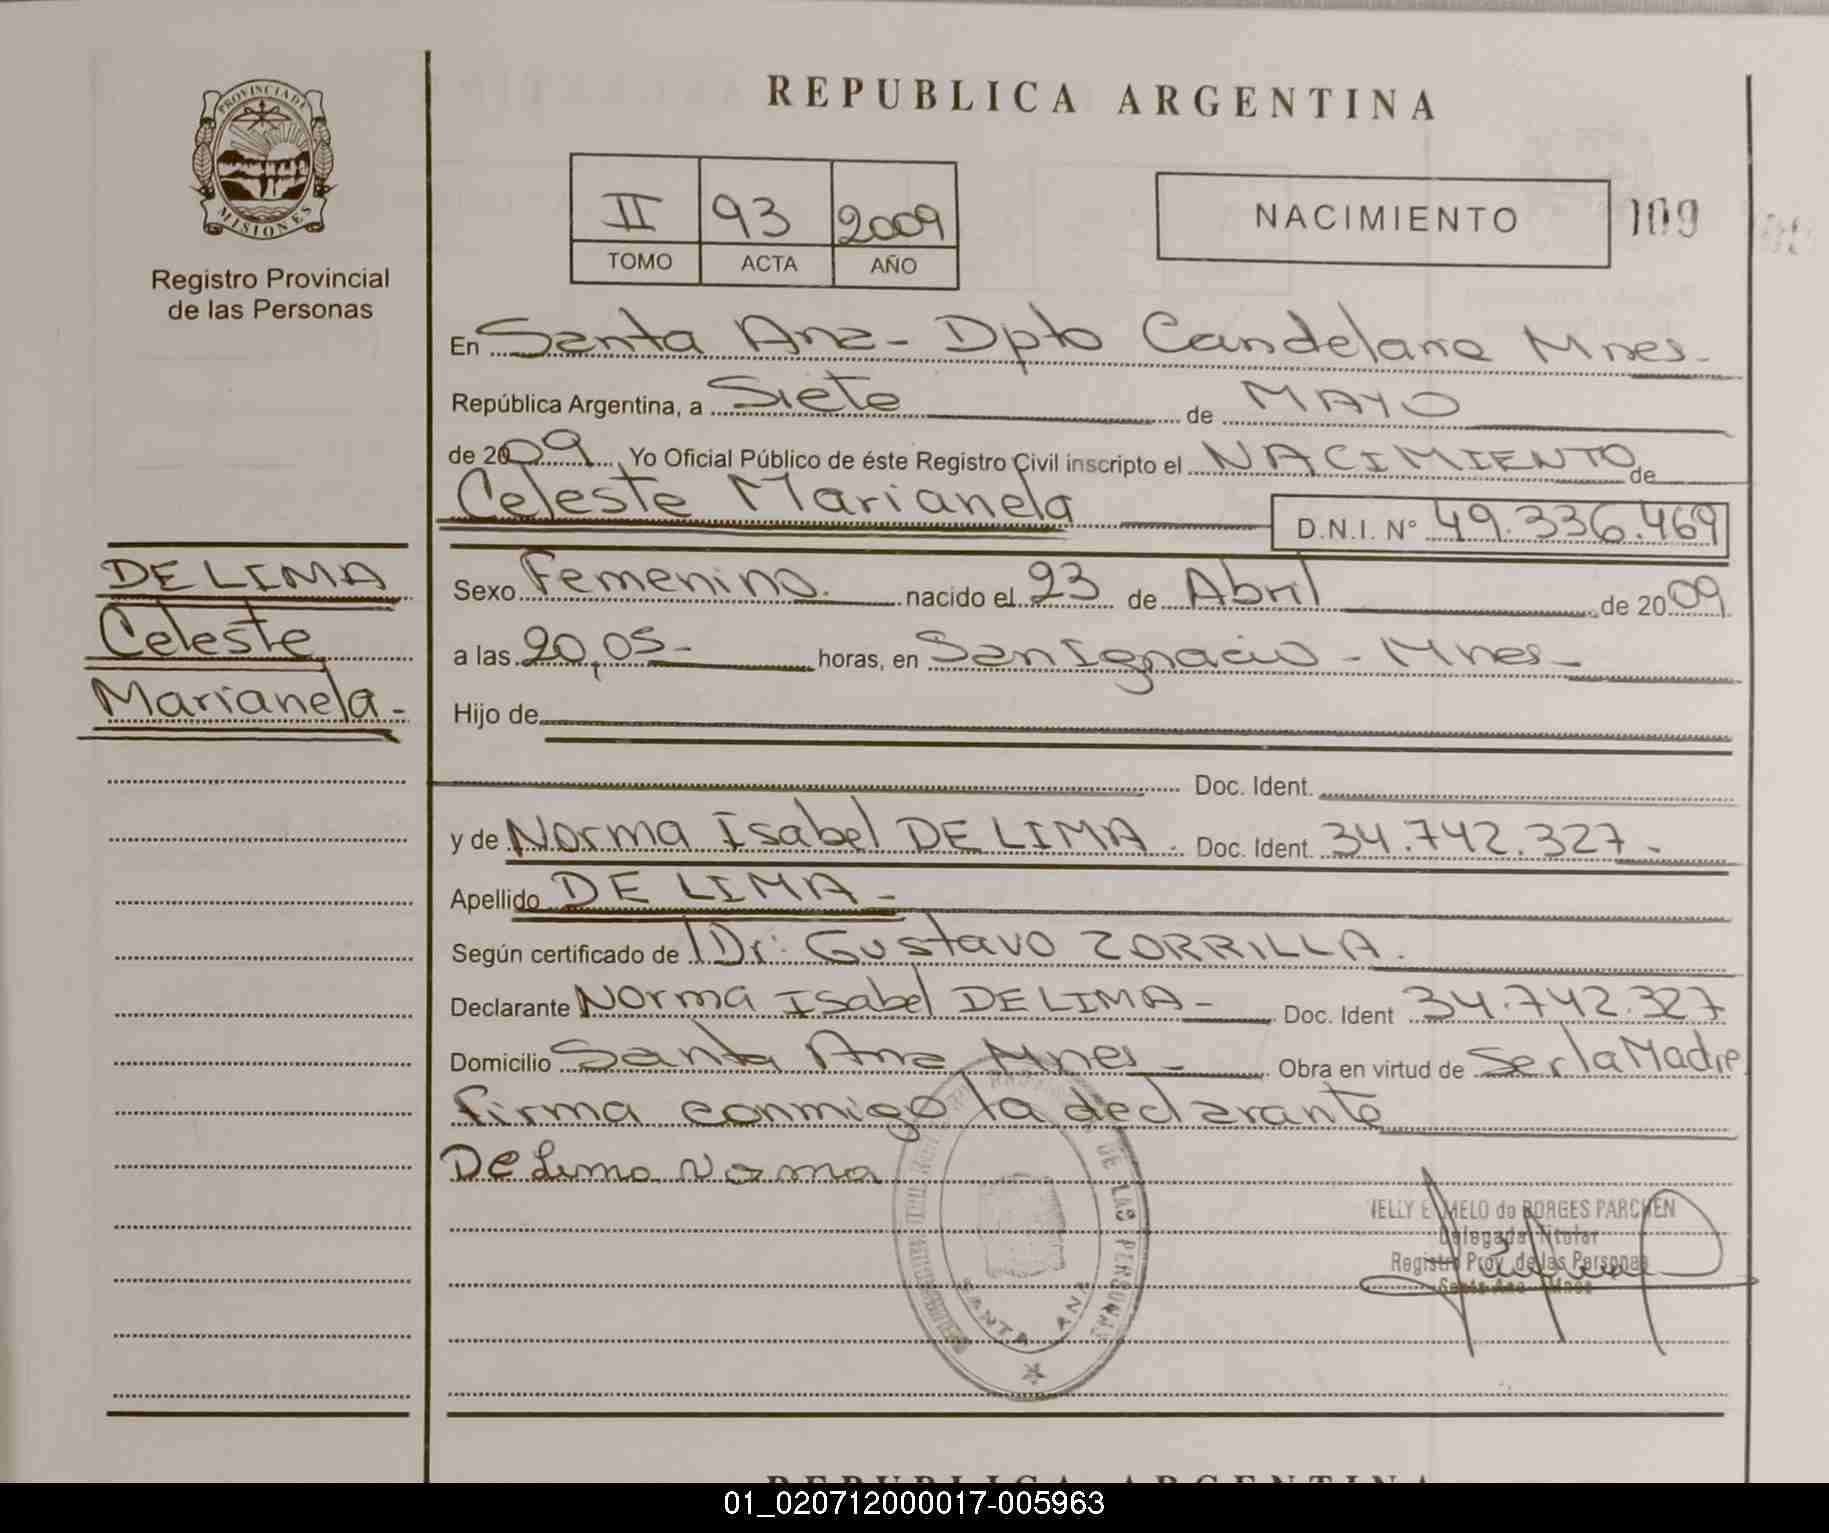 PROVINCIA DE
MISIONES
Registro Provincial
de las Personas
DE LIMA
Celeste
Marianela -
REPUBLICA ARGENTINA
II 93 2009
TOMO ACTA AÑO
NACIMIENTO 109
En Santa Ana - Dpto Candelaria Mnes -
República Argentina, a Siete de MAYO
de 2009 Yo Oficial Público de éste Registro Civil inscripto el NACIMIENTO de
Celeste Marianela D.N.I. Nº 49.336.469
Sexo Femenino. nacido el 23 de Abril de 2009
a las 20,05 - horas, en San Ignacio - Mnes -
Hijo de
Doc. Ident.
y de Norma Isabel DE LIMA. Doc. Ident. 34.742.327 -
Apellido DE LIMA -
Según certificado de Dr: Gustavo ZORRILLA.
Declarante Norma Isabel DE LIMA - Doc. Ident 34.742.327
Domicilio Santa Ana Mnes - Obra en virtud de Ser la Madre
firma conmigo la declarante
De Lima Norma
DE LAS PERSONAS
SANTA ANA
NELLY E. MELO de BORGES PARCHEN
Delegada Titular
Registro Prov. de las Personas
Santa Ana - Mnes
REPUBLICA ARGENTINA
01_020712000017-005963